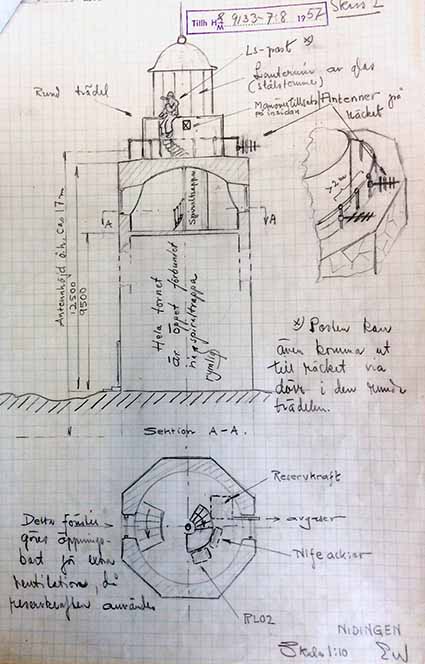 Tillh H/M 9133-7:8 1957
Skiss 2
Ls-post x)
Lanternin av glas
(stålstomme)
Rund trädel
Manövertillsats
på insidan
Antenner på
räcket
Spiraltrappa
A
A
Antennhöjd ö.h. ca 17 m
12500
9500
Hela tornet
är öppet förbundet
via spiraltrappa
(rymlig)
x) Posten kan
även komma ut
till räcket via
dörr i den runda
trädelen.
Sektion A-A.
Reservkraft
avgaser
Detta fönster
göres öppnings-
bart för extra
ventilation, då
reservkraften användes
Nife ackar
RL02
NIDINGEN
Skala 1:10
EW